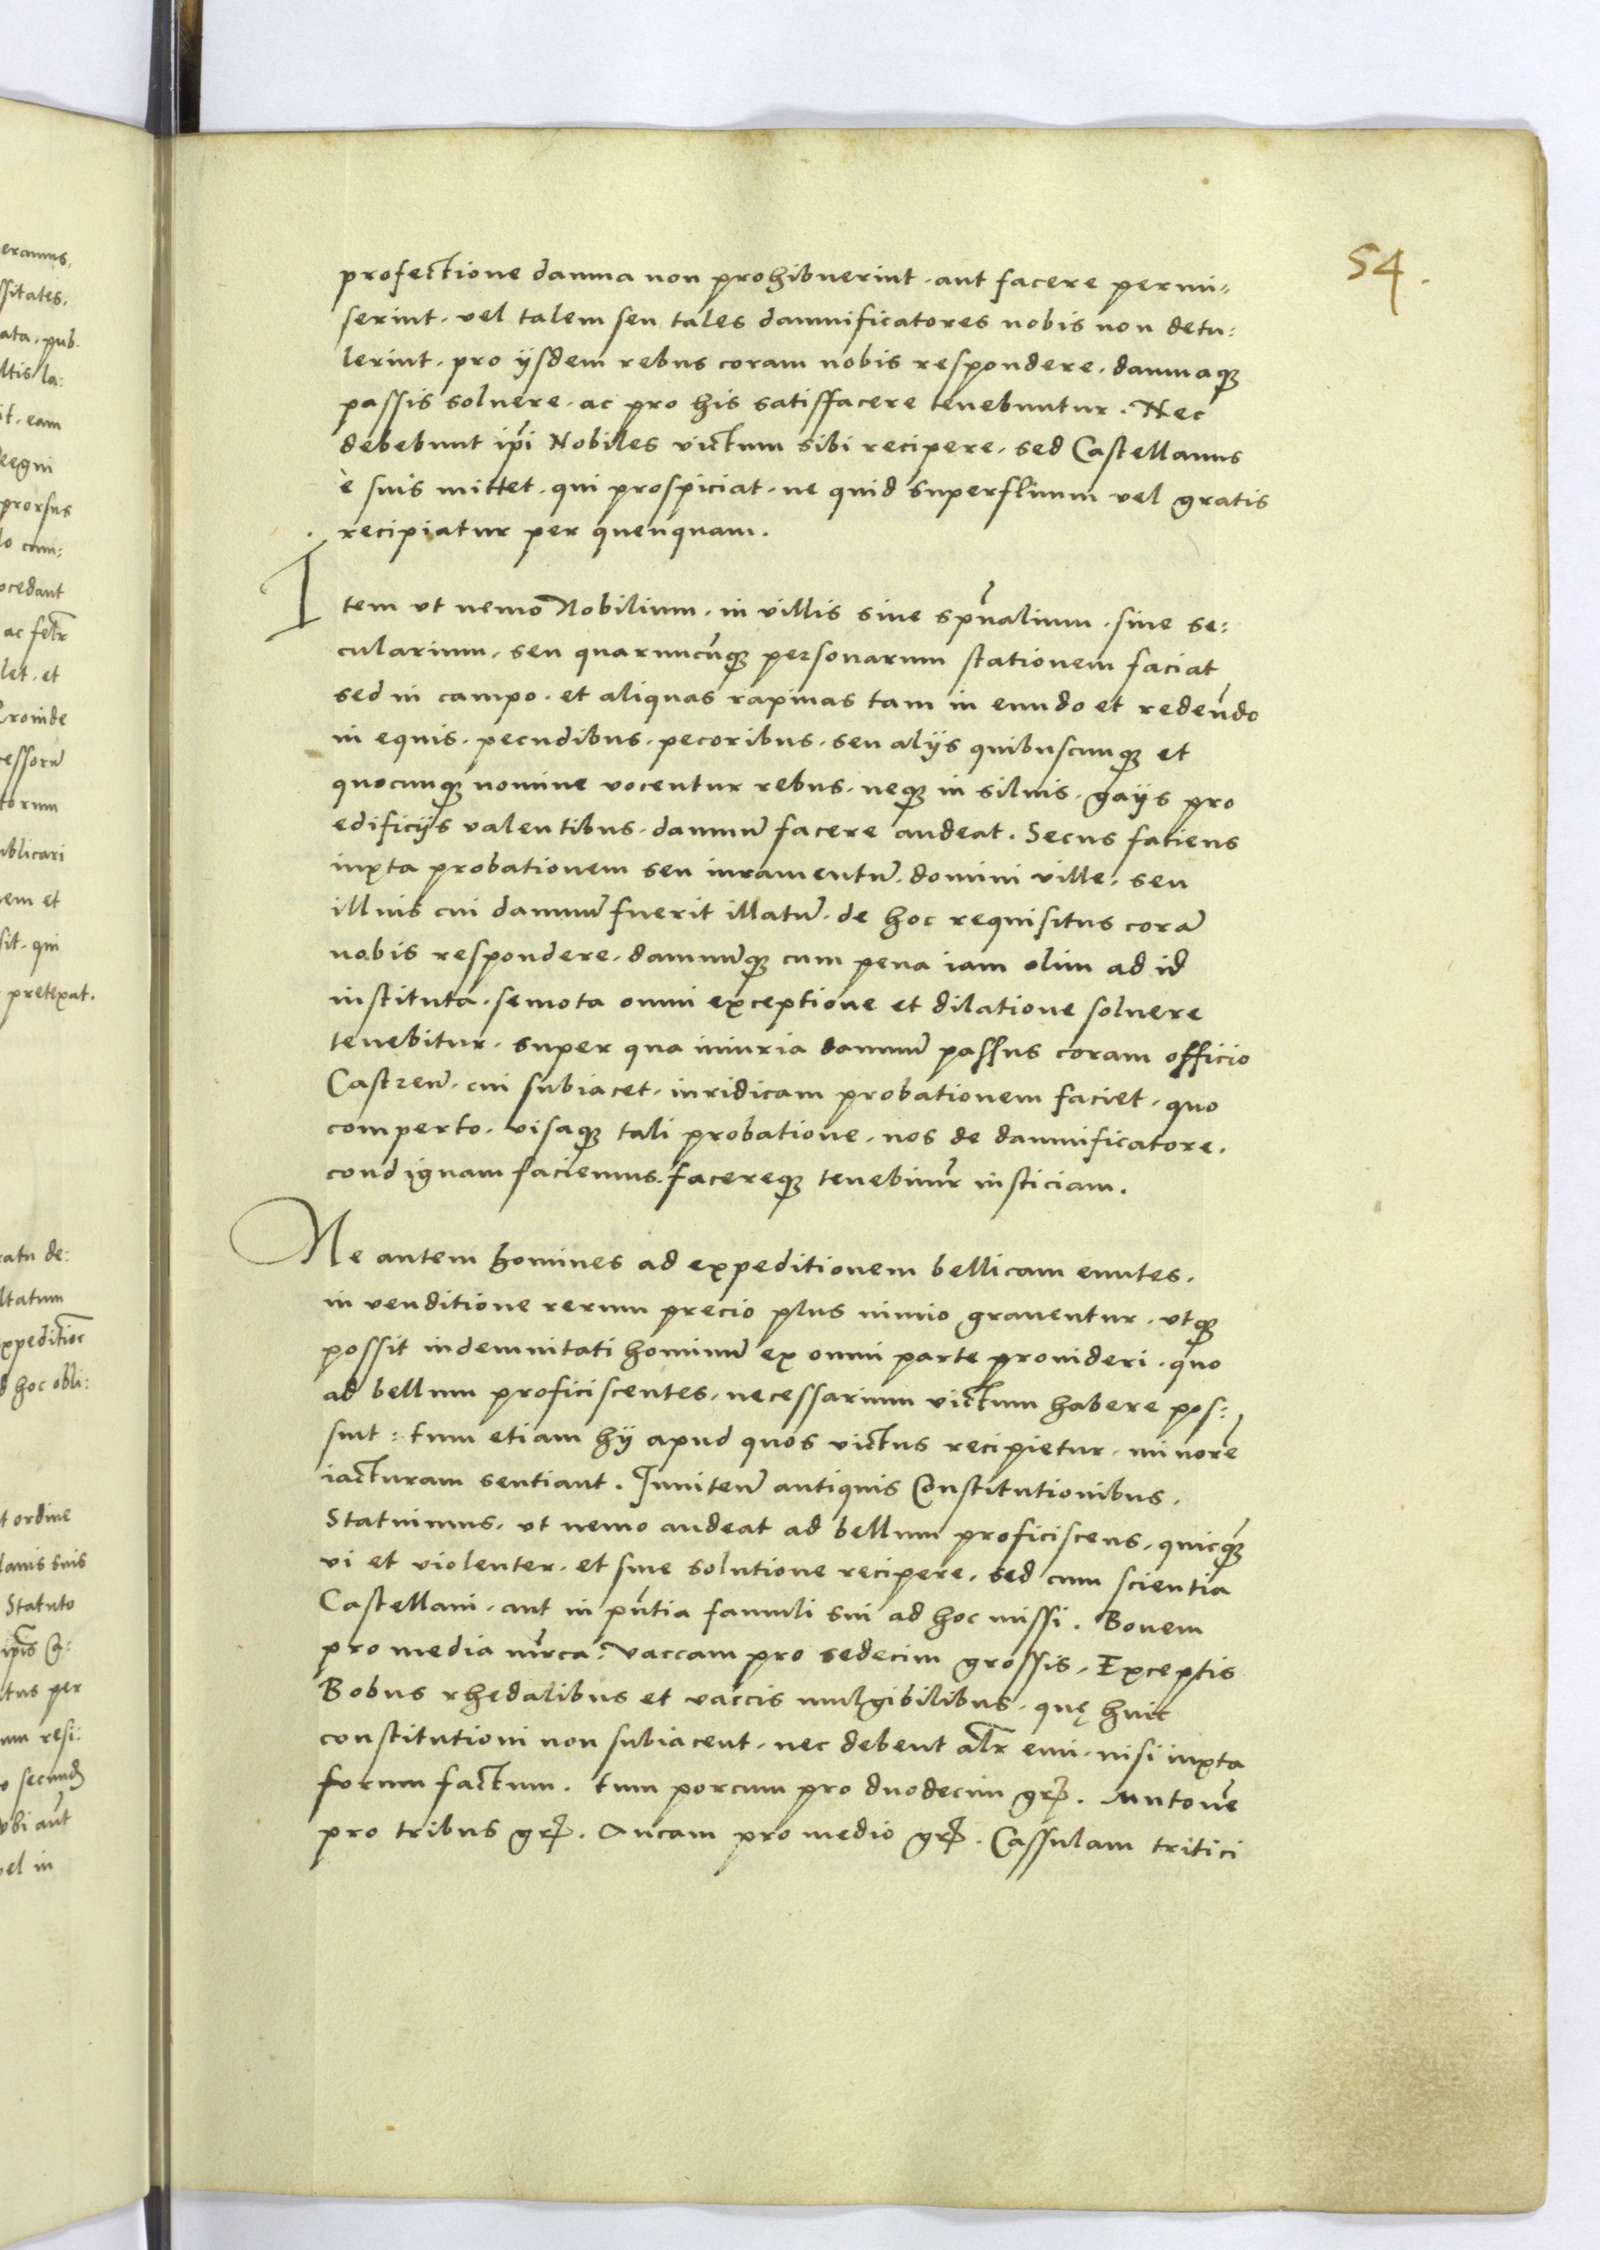 54.
profectione damna non prohibuerint. aut facere permi=
serint. vel talem seu tales damnificatores nobis non detu:
lerint. pro ijsdem rebus coram nobis respondere. damnaq3
passis soluere. ac pro his satisfacere tenebuntur. Nec
debebunt ip̃i Nobiles victum sibi recipere. sed Castellanus
è suis mittet. qui prospiciat. ne quid superfluum vel gratis
recipiatur per quenquam.
Item vt nemo Nobilium. in villis siue spũalium. siue se:
cularium. seu quarumcũq3 personarum stationem faciat
sed in campo. et aliquas rapinas tam in eundo et redeũdo
in equis. pecudibus. pecoribus. seu alijs quibuscunq3 et
quocunq3 nomine vocentur rebus. neq3 in siluis. gaijs pro
edificijs valentibus. damnũ facere audeat. Secus faciens
iuxta probationem seu iuramentũ. domini ville. seu
illius cui damnũ fuerit illatũ. de hoc requisitus corã
nobis respondere. damnũq3 cum pena iam olim ad id
instituta. semota omni exceptione et dilatione soluere
tenebitur. super qua iniuria damnũ passus coram officio
Castreñ. cui subiacet. iuridicam probationem faciet. quo
comperto. visaq3 tali probatione. nos de damnificatore.
condignam faciemus. facereq3 tenebimũr iusticiam.
Ne autem homines ad expeditionem bellicam euntes.
in venditione rerum precio plus nimio grauentur. vtq3
possit indemnitati hominũ ex omni parte prouideri. quo
ad bellum proficiscentes. necessarium victum habere pos:
sint: tum etiam hij apud quos victus recipietur. minorẽ
iacturam sentiant. Inniteñ antiquis Constitutionibus.
Statuimus. vt nemo audeat ad bellum proficiscens. quicq̃3
vi et violenter. et sine solutione recipere. sed cum scientia
Castellani. aut in pñtia famuli sui ad hoc missi. Bouem
pro media mrca. Vaccam pro sedecim grossis. Exceptis
Bobus rhedalibus et vaccis mulgibilibus. quę huic
constitutioni non subiacent. nec debent alr̃ emi. nisi iuxta
forum factum. tum porcum pro duodecim gr. Mutonẽ
pro tribus gr. Aucam pro medio gr. Cassulam tritici